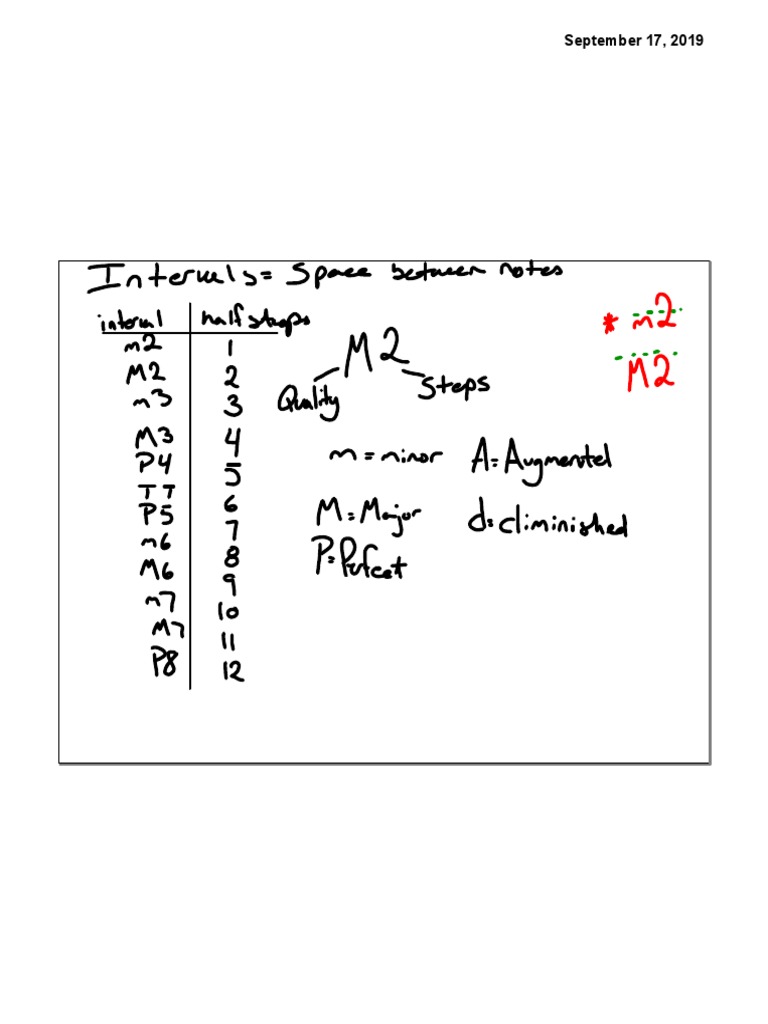 September 17, 2019
Intervals = Space between notes
interval half steps
m2 1
M2 2
m3 3
M3 4
P4 5
TT 6
P5 7
m6 8
M6 9
m7 10
M7 11
P8 12
M2
Quality Steps
m = minor A = Augmented
M = Major d = diminished
P = Perfect
* m2
M2